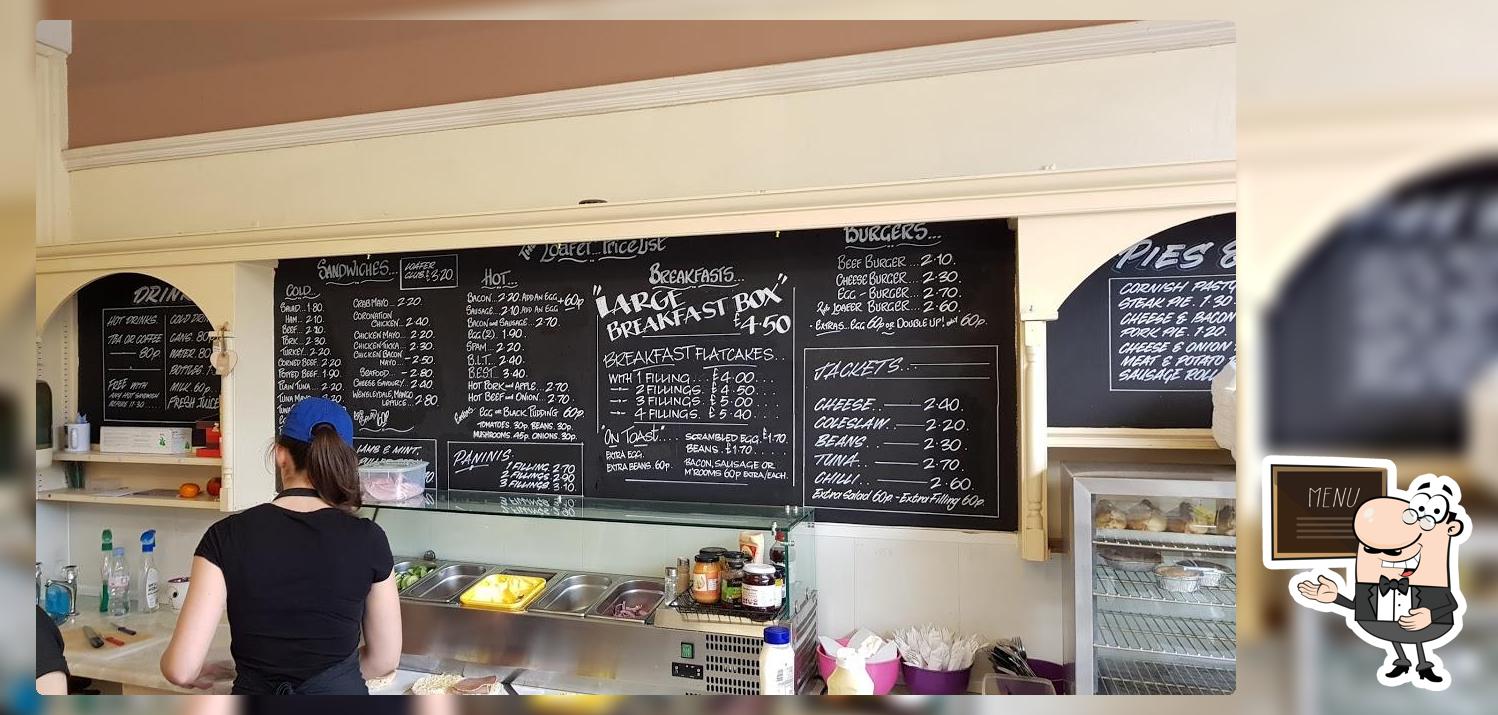 HOT DRINKS.
TEA OR COFFEE
80p.
FREE WITH
ANY HOT SANDWICH
BEFORE 11·30
COLD
CANS. 80p
WATER. 80
MILK. 60p.
FRESH JUICE
THE Loafer... Price List
SANDWICHES...
LOAFER
CLUB. £3.20.
COLD...
SALAD...1·80.
HAM...2·10.
BEEF...2·10.
PORK...2·30.
TURKEY..2·20.
CORNED BEEF. 2·20.
POTTED BEEF. 1·90.
PLAIN TUNA...2·20.
TUNA MAYO
CRAB MAYO...2·20.
CORONATION
CHICKEN...2·40.
CHICKEN MAYO...2·20.
CHICKEN TIKKA...2·30.
CHICKEN BACON
MAYO...2·50
SEAFOOD...2·80.
CHEESE SAVOURY..2·40
WENSLEYDALE, MANGO
LETTUCE...2·80.
LAMB & MINT,
HOT...
BACON..2·20. ADD AN EGG +60p
SAUSAGE..2·10. ADD AN EGG
BACON and SAUSAGE...2·70.
EGG (2). 1·90.
SPAM...2·20
B.L.T... 2·40.
B.E.S.T. 3·40.
HOT PORK and APPLE...2·70.
HOT BEEF and ONION...2·70.
Extras. EGG or BLACK PUDDING 60p.
TOMATOES. 30p. BEANS. 30p.
MUSHROOMS. 45p. ONIONS. 30p.
PANINIS.
1 FILLING. 2·70
2 FILLINGS 2·90
3 FILLINGS 3·10.
BREAKFASTS...
"LARGE
BREAKFAST BOX"
£4·50
BREAKFAST FLATCAKES...
WITH 1 FILLING...£4·00...
2 FILLINGS. £4·50...
3 FILLINGS. £5·00...
4 FILLINGS. £5·40...
"ON TOAST"...
EXTRA EGG.
EXTRA BEANS. 60p.
SCRAMBLED EGG. £1·70.
BEANS. £1·70.
BACON, SAUSAGE OR
M'ROOMS 60p EXTRA/EACH.
BURGERS...
BEEF BURGER...2·10.
CHEESE BURGER...2·30.
EGG-BURGER...2·70
LOAFER BURGER...2·60.
·EXTRAS...EGG 60p or DOUBLE UP! and 60p.
JACKETS...
CHEESE...2·40.
COLESLAW.2·20.
BEANS...2·30.
TUNA...2·70.
CHILLI...2·60.
Extra Salad 60p.-Extra Filling 60p.
PIES &
CORNISH PASTY
STEAK PIE. 1·30
CHEESE & BACON
PORK PIE. 1·20.
CHEESE & ONION
MEAT & POTATO
SAUSAGE ROLL
MENU